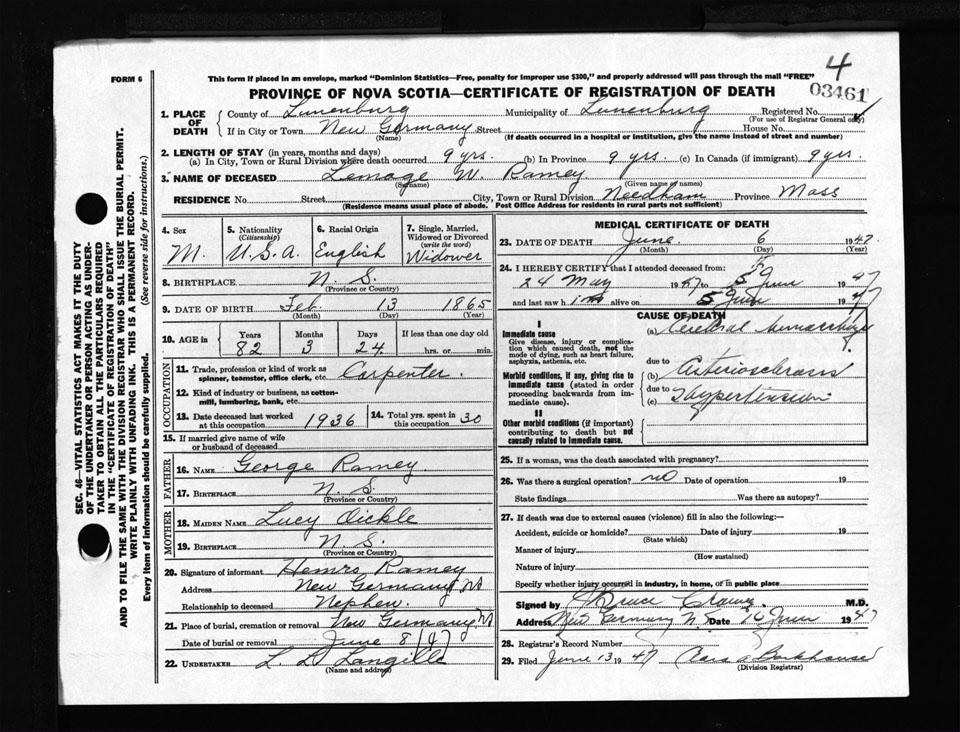 4
FORM 6
This form if placed in an envelope, marked "Dominion Statistics—Free, penalty for improper use $300," and properly addressed will pass through the mail "FREE"
PROVINCE OF NOVA SCOTIA—CERTIFICATE OF REGISTRATION OF DEATH
03461
1. PLACE OF DEATH
County of Lunenburg Municipality of Lunenburg Registered No.
(For use of Registrar General only)
If in City or Town New Germany Street House No.
(Name) (If death occurred in a hospital or institution, give the name instead of street and number)
2. LENGTH OF STAY (in years, months and days)
(a) In City, Town or Rural Division where death occurred 9 yrs. (b) In Province 9 yrs. (c) In Canada (if immigrant) 9 yrs.
3. NAME OF DECEASED Lemage W. Ramey
(Surname) (Given name of names)
RESIDENCE No. Street City, Town or Rural Division Needham Province Mass
(Residence means usual place of abode. Post Office Address for residents in rural parts not sufficient)
4. Sex
M.
5. Nationality
(Citizenship)
U.S.A.
6. Racial Origin
English
7. Single, Married, Widowed or Divorced
(write the word)
Widower
8. BIRTHPLACE N. S.
(Province or Country)
9. DATE OF BIRTH Feb. 13 1865
(Month) (Day) (Year)
10. AGE in Years Months Days If less than one day old
82 3 24. hrs. or min.
OCCUPATION
11. Trade, profession or kind of work as spinner, teamster, office clerk, etc. Carpenter.
12. Kind of industry or business, as cotton-mill, lumbering, bank, etc.
13. Date deceased last worked at this occupation 1936
14. Total yrs. spent in this occupation 30
15. If married give name of wife or husband of deceased
FATHER
16. NAME George Ramey.
17. BIRTHPLACE N. S.
(Province or Country)
MOTHER
18. MAIDEN NAME Lucy
19. BIRTHPLACE N. S.
(Province or Country)
20. Signature of informant Ramey
Address New Germany NS
Relationship to deceased Nephew.
21. Place of burial, cremation or removal New Germany N
Date of burial or removal June 8/47
22. UNDERTAKER L. L. Langille
(Name and address)
MEDICAL CERTIFICATE OF DEATH
23. DATE OF DEATH June 6 1947
(Month) (Day) (Year)
24. I HEREBY CERTIFY that I attended deceased from:
24 May 1947 5 June 47
and last saw him alive on 5 June 47
CAUSE OF DEATH
I
Immediate cause
Give disease, injury or complication which caused death, not the mode of dying, such as heart failure, asphyxia, asthenia, etc.
(a) Cerebral hemorrhage
due to
Morbid conditions, if any, giving rise to immediate cause (stated in order proceeding backwards from immediate cause).
(b) Arteriosclerosis
due to
(c) Hypertension
II
Other morbid conditions (if important) contributing to death but not causally related to immediate cause.
25. If a woman, was the death associated with pregnancy?
26. Was there a surgical operation? no Date of operation 19
State findings Was there an autopsy?
27. If death was due to external causes (violence) fill in also the following:—
Accident, suicide or homicide? Date of injury 19
(State which)
Manner of injury
(How sustained)
Nature of injury
Specify whether injury occurred in industry, in home, or in public place
Signed by M.D.
Address New Germany N.S. Date 10 June 1947
28. Registrar's Record Number
29. Filed June 13 1947 Clara A Barkhouse
(Division Registrar)
SEC. 46—VITAL STATISTICS ACT MAKES IT THE DUTY
OF THE UNDERTAKER OR PERSON ACTING AS UNDER-
TAKER TO OBTAIN ALL THE PARTICULARS REQUIRED
IN THE "CERTIFICATE OF REGISTRATION OF DEATH"
AND TO FILE THE SAME WITH THE DIVISION REGISTRAR WHO SHALL ISSUE THE BURIAL PERMIT.
WRITE PLAINLY WITH UNFADING INK. THIS IS A PERMANENT RECORD.
Every item of information should be carefully supplied. (See reverse side for instructions.)